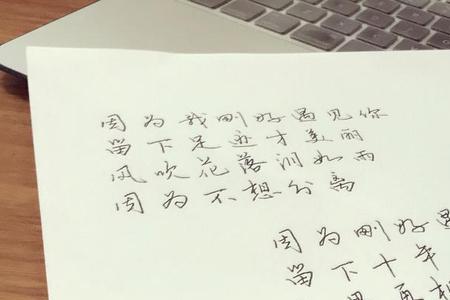 因为我刚好遇见你
留下足迹才美丽
风吹花落泪如雨
因为不想分离
因为刚好遇
留下十年
再相